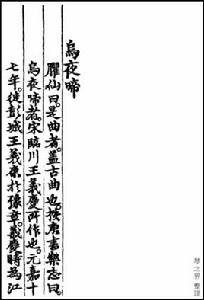 烏夜啼
臞仙曰。是曲者。蓋古曲也。按唐書樂志曰。
烏夜啼者。宋臨川王義慶所作也。元嘉十
七年。徙彭城王義康於豫章。義慶時為江
琴之界 整理